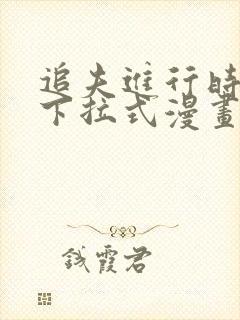 追夫進行時
下拉式漫畫
錢霞君